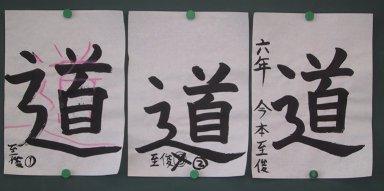 道
至俊①
道
至俊②
道
六年 今本至俊